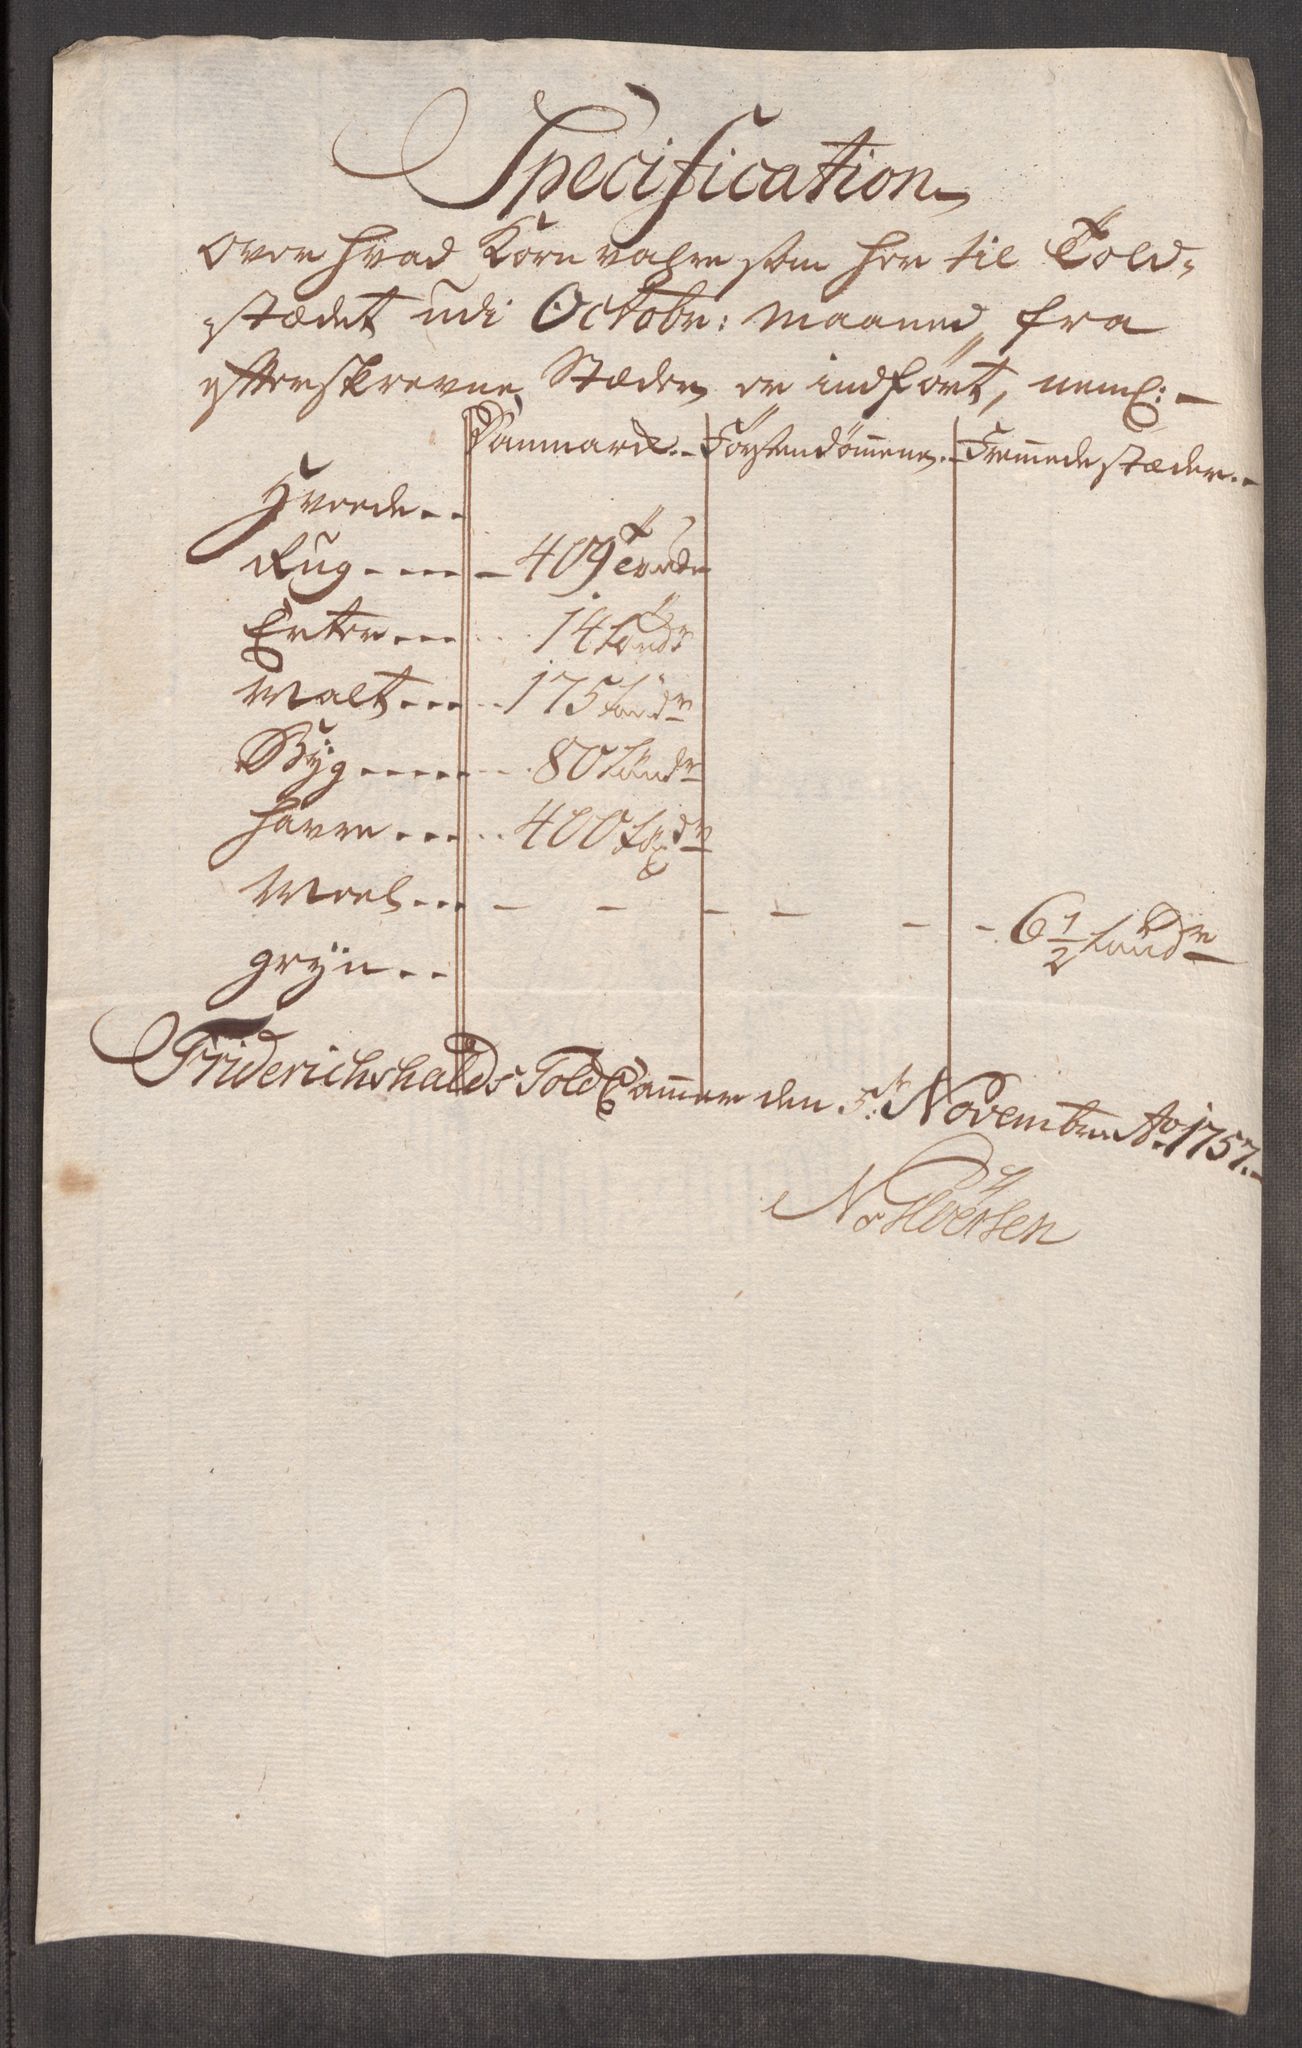 Specification
Over hvad Korn vahre som her til Told-
stædet udi Octobr: Maaned, fra
efterskrevne Stæder er indført, neml: -
Danmark.- Førstendømmene.- Fremmede stæder.-
Hvede..
Rug - - - - 409 Tønder
Erter - - - 14 tøndr
Malt - - - 175 tøndr
Byg - - - - 80 tøndr
Havre - - - 400 tøndr
Meel - - - - - - - - - 6 1/2 tøndr
gryn - -
Friderichshalds Told Cammer den 5te Novembr Ao 1757.-